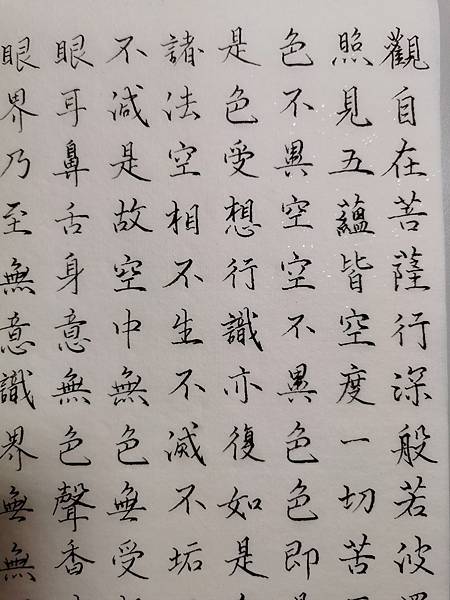 觀自在菩薩行深般若波
照見五蘊皆空度一切苦
色不異空空不異色色即
是色受想行識亦復如是
諸法空相不生不滅不垢
不減是故空中無色無受
眼耳鼻舌身意無色聲香
眼界乃至無意識界無無